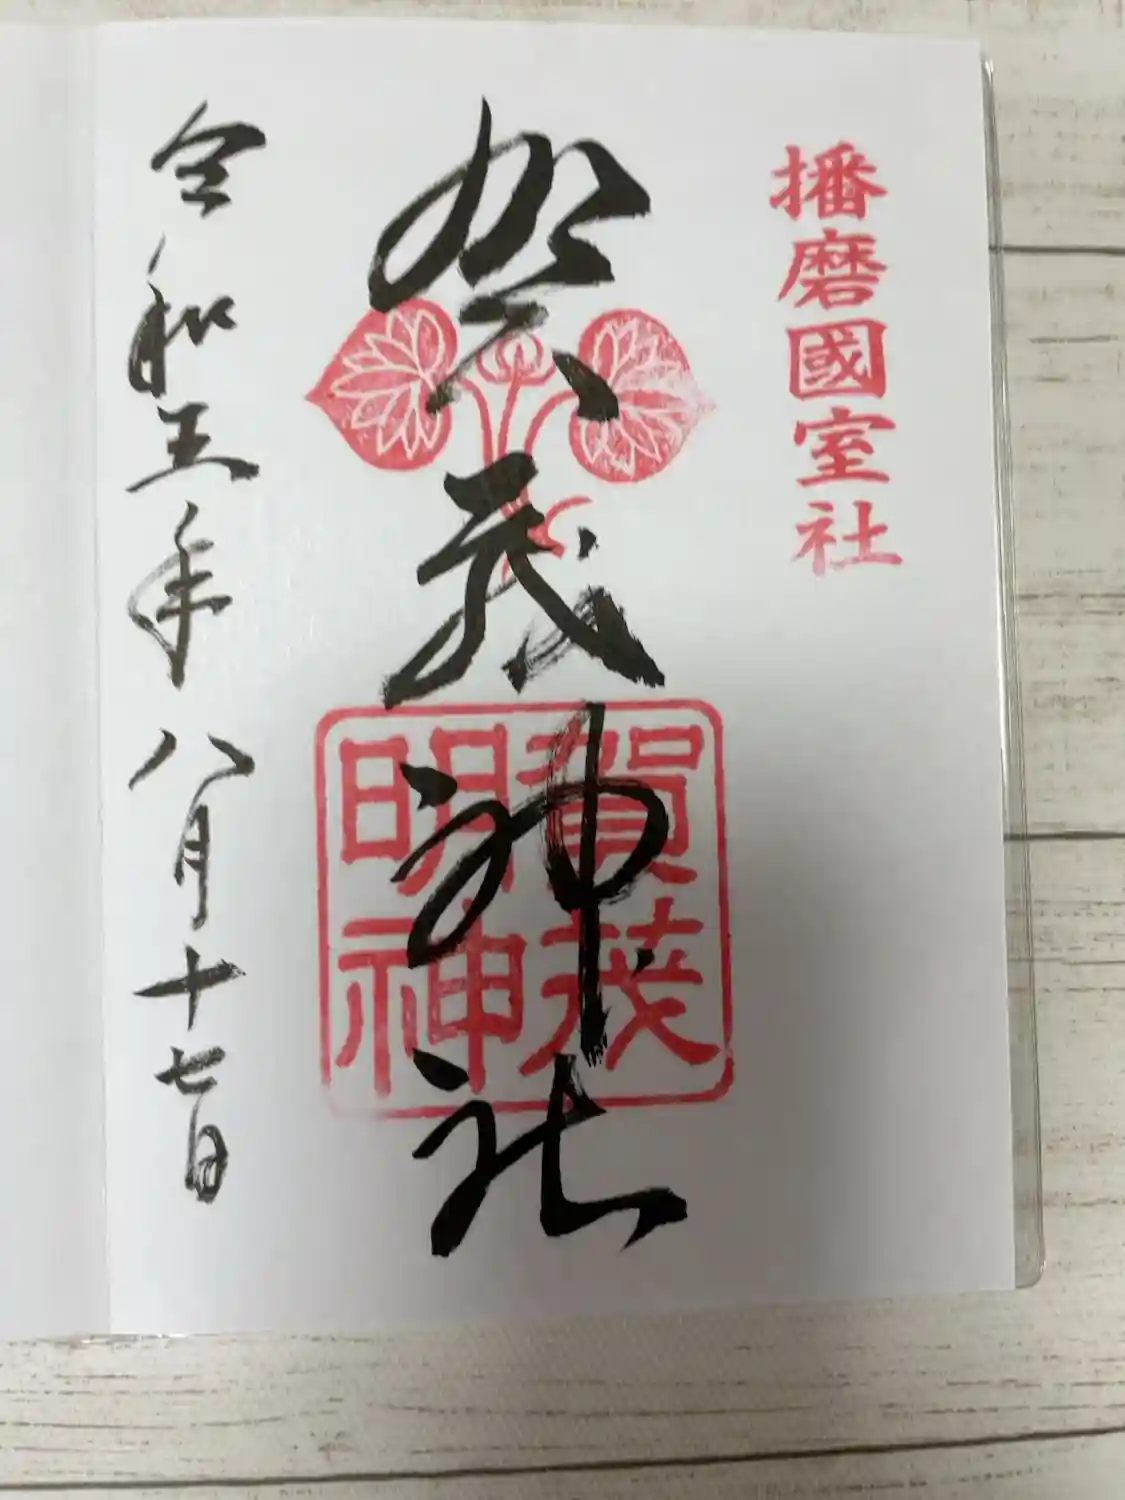 播磨國室社
賀茂神社
賀茂
明神
令和五年八月十七日